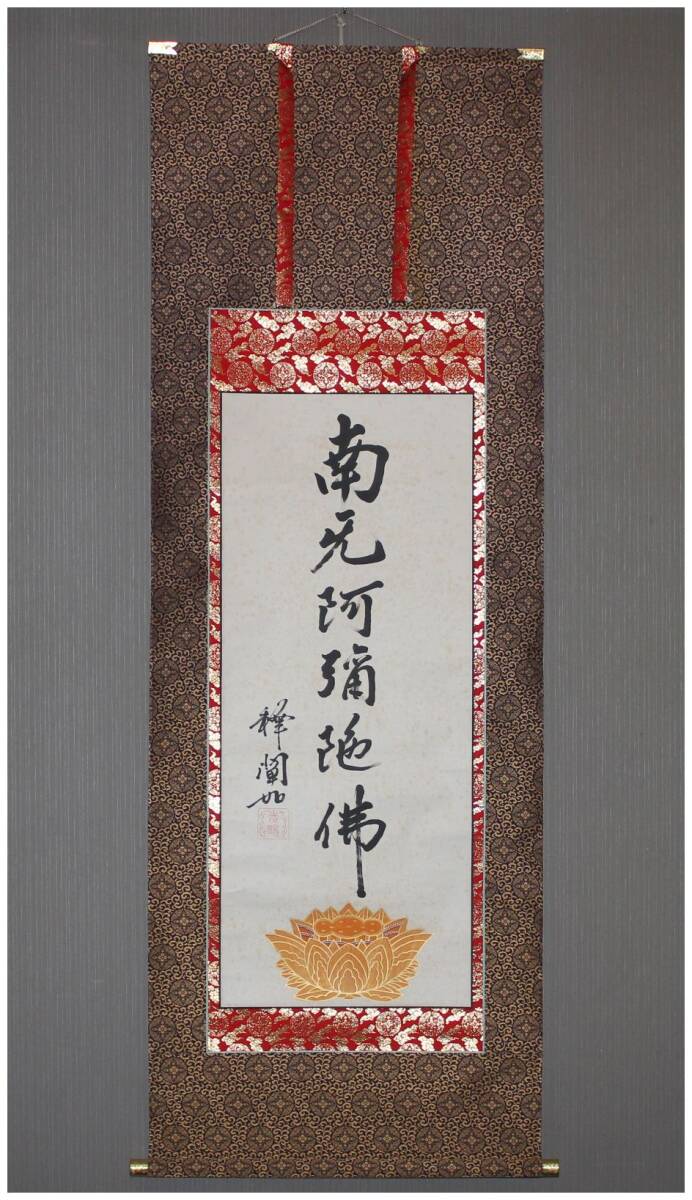 南无阿彌陀佛
釋闡如